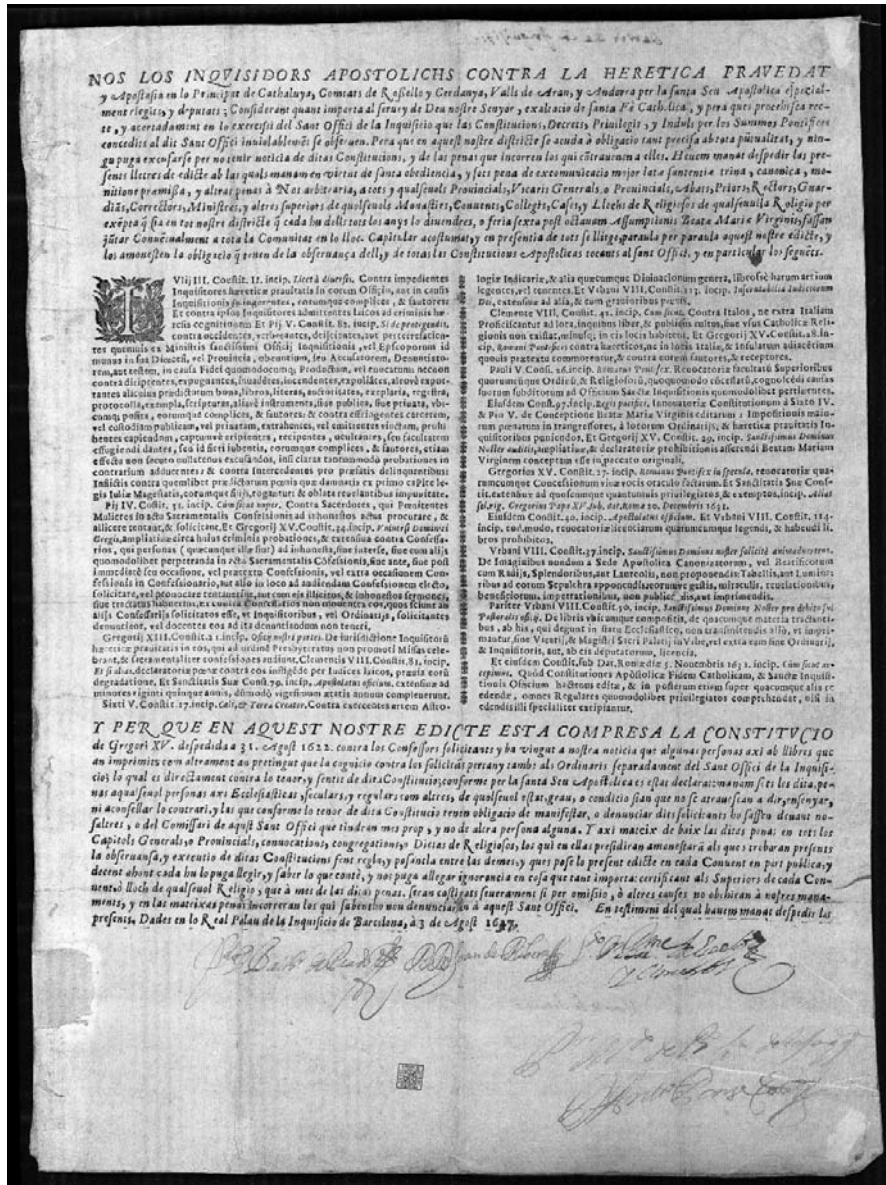 NOS LOS INQVISIDORS APOSTOLICHS CONTRA LA HERETICA PRAVEDAT
y Apostasia en lo Principat de Cathaluya, Comtats de Rossello y Cerdanya, Valls de Aran, y Andorra per la santa Seu Apostolica especial-
ment elegits, y deputats; Considerant quant importa al servey de Deu nostre Senyor, exaltacio de santa Fè Catholica, y pera que's procehisca rec-
te, y acertadament en lo exercisi del Sant Offici de la Inquisicio que las Constitucions, Decrets, Privilegis, y Indults per los Summos Pontifices
concedits al dit Sant Offici inviolablemēt se observen. Pera que en aquest nostre districte se acuda à obligacio tant precisa ab tota pūtualitat, y nin-
gu puga excusarse per no tenir noticia de ditas Constitucions, y de las penas que incorren los qui cōtravenen a elles. Havem manat despedir las pre-
sents lletres de edicte ab las quals manam en virtut de santa obediencia, y sots pena de excomunicacio major lata sententia trina, canonica, mo-
nitione præmissa, y altras penas à Nos arbitraria, a tots y qualsevols Provincials, Vicaris Generals, o Provincials, Abats, Priors, Rectors, Guar-
dians, Correctors, Ministres, y altres superiors de qualsevols Monastirs, Convents, Collegis, Cases, y Llochs de Religiosos de qualsevulla Religio per
exēpta q̄ sia en tot nostre districte q̄ cada hu dells tots los anys lo divendres, o feria sexta post octavam Assumptionis Beatæ Mariæ Virginis, fassan
jūtar Conventualment a tota la Comunitat en lo lloc Capitular acostumat, y en presentia de tots se llige, paraula per paraula aquest nostre edicte, y
los amonesten la obligacio q̄ tenen de la observança dell, y de totas las Constitucions Apostolicas tocants al sant Offici, y en particular los següets.
IVlij III. Constit. II. incip. Licet à diversis. Contra impedientes
Inquisitores hæreticæ pravitatis in eorum Officio, aut in causis
Inquisitionis se ingerentes, eorumque complices, & fautores:
Et contra ipsos Inquisitores admittentes Laicos ad criminis hæ-
resis cognitionem Et Pij V. Constit. 82. incip. Si de protegendis,
contra occidentes, verberantes, deijcientes, aut perterrefacien-
tes quemuis ex Ministris sanctissimi Officij Inquisitionis, vel Episcoporum id
munus in sua Diœcesi, vel Provincia, obeuntium, seu Accusatorem, Denuntiato-
rem, aut testem, in causa Fidei quomodocumq; Productum, vel euocatum: necnon
contra diripientes, expugnantes, inuadētes, incendentes, expoliātes, aliouè expor-
tantes alicuius prædictorum bona, libros, literas, auctoritates, exeplaria, registra,
protocolla, exempla, scripturas, aliauè instrumenta, siue publica, siue priuata, vbi-
cumq; posita, eorumque complices, & fautores: & contra effringentes carcerem,
vel custodiam publicam, vel priuatam, extrahentes, vel emittentes vinctum, prohi-
bentes capiendum, captumuè eripientes, recipentes, ocultantes, seu facultatem
effugiendi dantes, seu id fieri iubentis, eorumque complices, & fautores, etiam
effectu non secuto nullatenus excusandos, nisi claras taorummodo probationes in
contrarium adducentes: & contra Intercedentes pro præfatis delinquentibus:
Inflictis contra quemlibet prædictorum pœnis quæ damnatis ex primo capite le-
gis Iuliæ Magestatis, eorumque filijs, rogantur: & oblata reuelantibus impunitate.
Pij IV. Costit. 31. incip. Cùm sicut nuper. Contra Sacerdotes, qui Penitentes
Mulieres in actu Sacramentalis Confessionis ad inhonestos actus procurare, &
allicere tentant, & solicitant. Et Gregorij XV. Constit. 34. incip. Vniuersi Dominici
Gregis, ampliatiuæ circa huius criminis probationes, & extensiua contra Confessa-
rios, qui personas (quæcunque illæ sint) ad inhonesta, siue interse, siue cum alijs
quomodolibet perpetranda in actu Sacramentalis Cōfessionis, siue ante, siue post
immediatè seu occasione, vel prætextu Confessionis, vel extra occasionem Con-
fessionis in Confessionario, aut alio in loco ad audiendam Confessionem electo,
solicitare, vel prouocare tentauerint, aut cum eis illicitos, & inhonestos sermones,
siue tractatus habuerint, Ex contra Confessarios non monentes eos, quos sciunt ab
alijs Confessarijs solicitatos esse, vt Inquisitoribus, vel Ordinarijs, solicitantes
denuntient, vel docentes eos ad ita denuntiandum non teneri.
Gregorij XIII. Constit. 21. incip. Officij nostri partes. De iurisdictione Inquisitorū
hæreticæ prauitatis in eos, qui ad ordinē Presbyteratus non promoti Missas cele-
brant, & sacramentaliter confessiones audiunt. Clementis VIII. Constit. 81. incip.
Et si alias, declaratoriæ pœnæ contra eos infligēde per Iudices laicos, præuia eorū
degradatione. Et Sanctitatis Suæ Const. 79. incip. Apostolatus officium. extensiuæ ad
minores viginti quinque annis, dūmodò vigesimum ætatis annum compleuerint.
Sixti V. Constit. 17. incip. Cœli, & Terræ Creator. Contra exercentes artem Astro-
logiæ Iudicariæ, & alia quæcumque Diuinacionum genera, librosuè harum artium
legentes, vel tenentes. Et Vrbani VIII. Constit. 113. incip. Inscrutabilis Iudiciorum
Dei, extensiuæ ad alia, & cum grauioribus pœnis.
Clemente VIII. Constit. 41. incip. Cum sicut. Contra Italos, ne extra Italiam
Proficiscantur ad loca, in quibus liber, & publicus cultus, siue vsus Catholicæ Reli-
gionis non existat, neuè se, in eis locis habitent. Et Gregorij XV. Constit. 28. In-
cip. Romani Pontificis contra hæreticos, ne in locis Italiæ, & Insularum adiacētium
quouis prætextu commorentur, & contra eorem fautores, & receptores.
Pauli V. Const. 26. incip. Romanus Pontifex. Reuocatoriæ facultatū Superioribus
quorumcunque Ordinū, & Religiosorū, quoquomodo cōcessarū, cognoscēdi causas
suorum subditorum ad Officium Sanctæ Inquisitionis quomodolibet pertinentes.
Eiusdem Const. 97. incip. Regis pacifici, Innouatoriæ Constitutionum à Sixto IV.
& Pio V. de Conceptione Beatæ Mariæ Virginis editarum: Impositionis maio-
rum pœnarum in trangressores, à locorum Ordinarijs, & hæreticæ prauitatis In-
quisitoribus puniendos. Et Gregorij XV. Constit. 29. incip. Sanctissimus Dominus
Noster auditis, ampliatiuæ, & declaratoriæ prohibitionis asserendi Beatam Mariam
Virginem conceptam esse in peccato originali.
Gregorius XV. Constit. 27. incip. Romanus Pontifex in specula, reuocatoriæ qua-
rumcunque Concessionum viuæ vocis oraculo factarum. Et Sanctitatis Suæ Consti-
tit. extensiuæ ad quoscunque quantumuis priuilegiatos, & exemptos, incip. Alias
fel. rig. Gregorius Papa XV. sub. dat. Roma 20. Decembris 1631.
Eiusdem Constit. 40. incip. Apostolatus officium. Et Vrbani VIII. Constit. 114.
incip. eod. modo, reuocatoriæ licentiarum quarumcunque legendi, & habendi li-
bros prohibitos.
Vrbani VIII. Constit. 37. incip. Sanctissimus Dominus noster solicitè animaduertens.
De Imaginibus nondum a Sede Apostolica Canonizatorum, vel Beatificatorum
cum Radijs, Splendoribus, aut Laureolis, non proponendis: Tabellis, aut Lumina-
ribus ad eorum Sepulchra apponendis; eorumuè gestis, miraculis, reuelationibus,
beneficiorum, impetrationibus, non publicādis, aut imprimendis.
Pariter Vrbani VIII. Constit. 50. incip. Sanctissimus Dominus Noster pro debito sui
Pastoralis officij. De libris vbicumque compositis, de quacumque materia tractanti-
bus, ab his, qui degunt in statu Ecclesiastico, non transmittendis aliò, vt impri-
mantur, sine Vicarij, & Magistri Sacri Palatij in Vrbe, vel extra eam sine Ordinarij,
& Inquisitoris, aut, ab eis deputatorum, licentia.
Et eiusdem Constit, sub Dat. Romæ die 5. Nouembris 1631. incip. Cùm sicut ac-
cepimus, Quòd Constitutiones Apostolicæ Fidem Catholicam, & Sanctæ Inquisi-
tionis Officium hactenus edita, & in posterum etiam super quacumque alia re
edendæ, omnes Regulares quomodolibet priuilegiatos comprehendāt, nisi in
edendis illi specialiter excipiantur.
Y PER QUE EN AQUEST NOSTRE EDICTE ESTA COMPRESA LA CONSTITVCIO
de Gregori XV. despedida a 31. Agost 1622. contra los Confessors solicitants y ha vingut a nostra noticia que algunas personas axi ab llibres que
an imprimits com altrament an pretingut que la cognicio contra los solicitās pertany tambè als Ordinaris separadament del Sant Offici de la Inquisi-
cio; lo qual es directament contra lo tenor, y sentit de dita Constitucio; conforme per la santa Seu Apostolica es estat declarat: manam sots les ditas pe-
nas a qualsevol personas axi Ecclesiasticas, seculars, y regulars com altres, de qualsevol estat, grau, o conditio sian que no se atrauescan a dir, ensenyar,
ni aconsellar lo contrari, y las que conforme lo tenor de dita Constitucio tenen obligacio de manifestar, o denunciar dits solicitants ho fassen deuant no-
saltres, o del Comissari de aquest Sant Offici que tindran mes prop, y no de altra persona alguna. Y axi mateix de baix las ditas penas en tots los
Capitols Generals, o Provincials, convocations, congregations, o Dietas de Religiosos, los qui en ellas presidiran amonestarà als ques trobaran presents
la observansa, y executio de ditas Constitucions fent regla, y posantla entre las demes, y ques pose lo present edicte en cada Convent en part publica, y
decent ahont cada hu lo puga llegir, y saber lo que conté, y nos puga allegar ignorancia en cosa que tant importa: certificant als Superiors de cada Con-
vent, ò lloch de qualsevol Religio, que à mes de las ditas penas, seran castigats severament si per omissio, ò altres causes no obehiran à nostres mana-
ments, y en las mateixas penas incorreran los qui sabentho nou denunciaran à aquest Sant Offici. En testimoni del qual havem manat despedir las
presents. Dades en lo Real Palau de la Inquisicio de Barcelona, à 3 de Agost